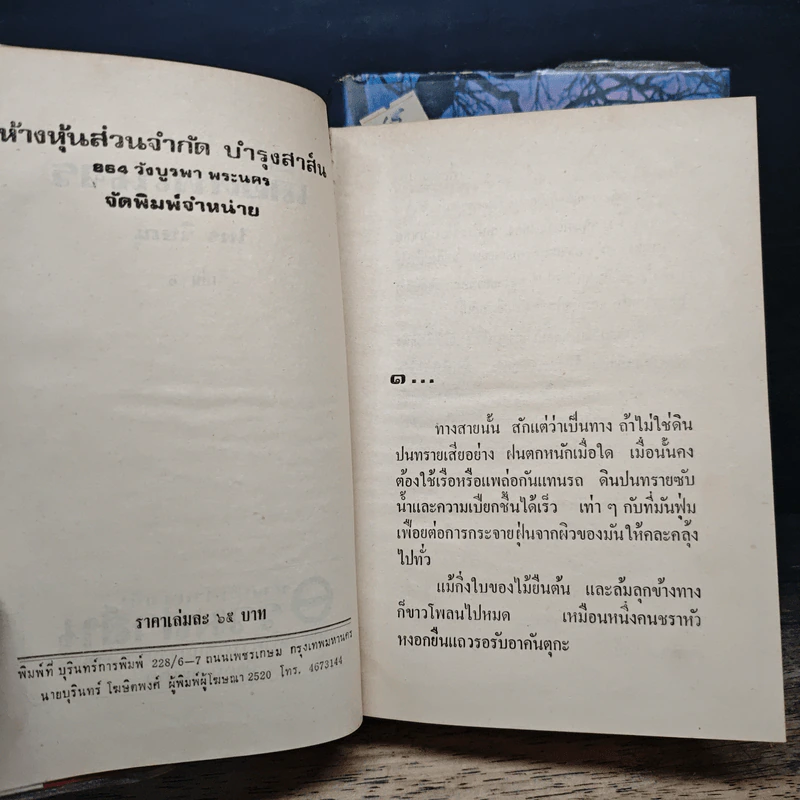 ห้างหุ้นส่วนจำกัด บำรุงสาส์น
864 วังบูรพา พระนคร
จัดพิมพ์จำหน่าย
ราคาเล่มละ ๖๕ บาท
พิมพ์ที่ บุรินทร์การพิมพ์ 228/6-7 ถนนเพชรเกษม กรุงเทพมหานคร
นายบุรินทร์ โฆษิตพงศ์ ผู้พิมพ์ผู้โฆษณา 2520 โทร. 4673144
๑...
ทางสายนั้น สักแต่ว่าเป็นทาง ถ้าไม่ใช่ดิน
ปนทรายเสียอย่าง ฝนตกหนักเมื่อใด เมื่อนั้นคง
ต้องใช้เรือหรือแพล่อกันแทนรถ ดินปนทรายซับ
น้ำและความเปียกชื้นได้เร็ว เท่า ๆ กับที่มันฟุ่ม
เฟือยต่อการกระจายฝุ่นจากผิวของมันให้คละคลุ้ง
ไปทั่ว
แม้กิ่งใบของไม้ยืนต้น และล้มลุกข้างทาง
ก็ขาวโพลนไปหมด เหมือนหนึ่งคนชราหัว
หงอกยืนแถวรอรับอาคันตุกะ